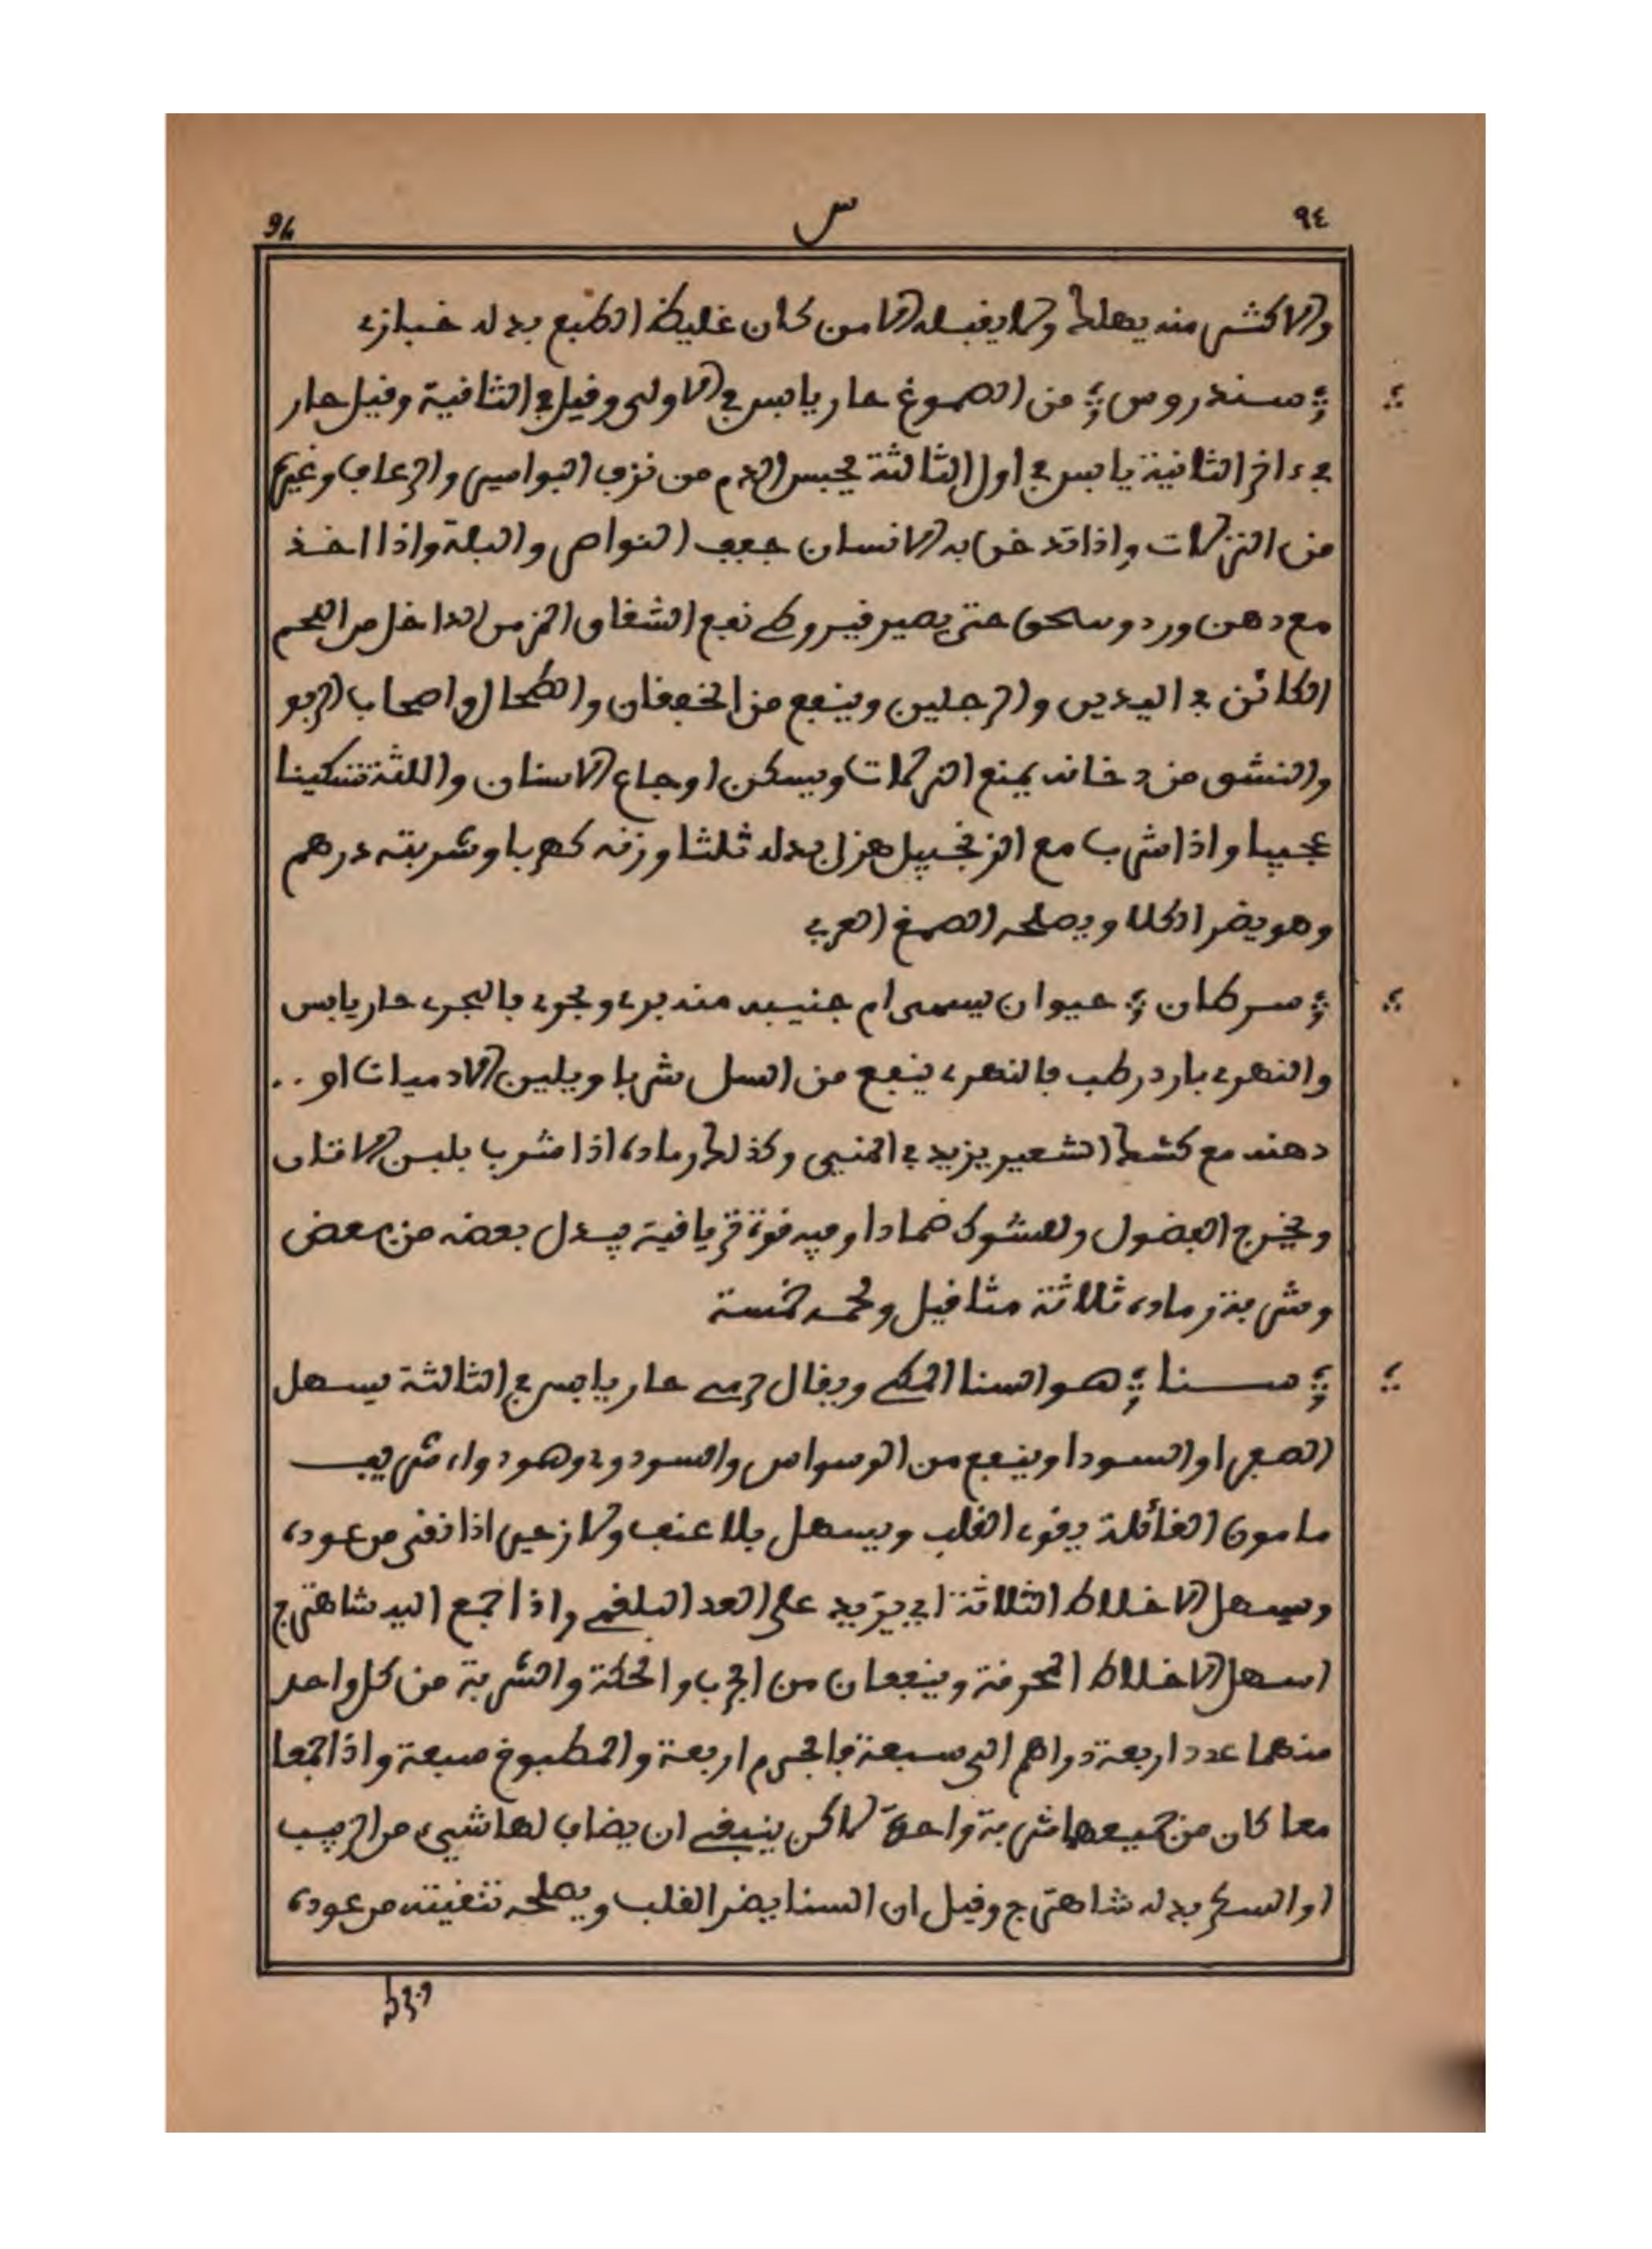 ٩٤ س 94
والاكثر منه يهلك ولا يقبله الا من كان غليظ الطبع بدله خبازى
؛ سندروس ؛ من الصموغ حار يابس في الاولى وقيل في الثانية وقيل حار
في ءاخر الثانية يابس في اول الثالثة يحبس الدم من نزف البواسير والرعاف وغيره
من النزلات وإذا تدخن به الانسان جفف النواصر والبلة واذا اخذ
مع دهن ورد وسحق حتى يصير فيروطي نفع الشقاق المزمن الداخل من اللحم
الكائن في اليدين والرجلين وينفع من الخفقان والطحال واصحاب الربو
والنشق من دخانه يمنع النزلات ويسكن اوجاع الاسنان واللثة تسكينا
عجيبا واذا شرب مع الزنجبيل هزل بدله ثلثا وزنه كهربا وشربته درهم
وهو يضر الكلا ويصلحه الصمغ العربي
؛ سرطان ؛ حيوان يسمى ام جنيبه منه بري وبحري فالبحري حار يابس
والنهري بارد رطب فالنهري ينفع من السل شربا ويلين الادميات او ..
دهنه مع كشك الشعير يزيد في المني وكذلك رماده اذا شرب بلبن الاتان
ويخرج الفضول والشوك ضمادا وفيه قوة ترياقية يبدل بعضه من بعض
وشربة رماده ثلاثة مثاقيل ولحمه خمسة
؛ سنا ؛ هو السنا المكي ويقال حرمي حار يابس في الثالثة يسهل
الصفرا والسودا وينفع من الوسواس والسوداوي وهو دواء شريف
مامون الغائلة يقوي القلب ويسهل بلا عنف ولا زحير اذا نقي من عوده
ويسهل الاخلاط الثلاثة اي يزيد على العد البلغمي واذا جمع اليه شاهترج
اسهل الاخلاط المحرقة وينفعان من الجرب والحكة والشربة من كل واحد
منهما عدد اربعة دراهم الى سبعة فالجرم اربعة والمطبوخ سبعة واذا اجمعا
معا كان من جميعهما شربة واحدة لاكن ينبغي ان يضاف لها شيء من الزبيب
او السكر بدله شاهترج وقيل ان السنا يضر القلب ويصلحه تنقيته من عوده